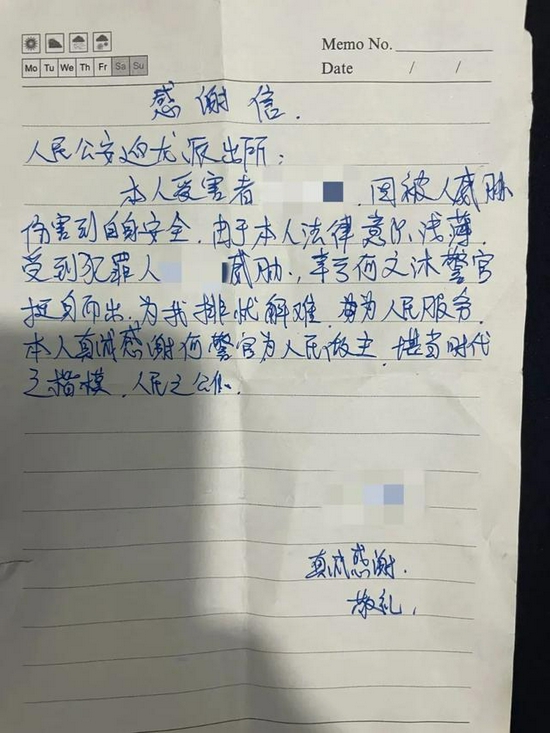 Memo No.
Mo Tu We Th Fr Sa Su
Date / /
感谢信.
人民公安迎龙派出所:
本人受害者 因被人威胁
伤害到自身安全.由于本人法律意识浅薄.
受到犯罪人 威胁.,幸亏何文沐警官
挺身而出.为我排忧解难,身为人民服务.
本人真诚感谢何警官为人民做主.堪当时代
之楷模.人民之公仆.
真诚感谢.
敬礼.